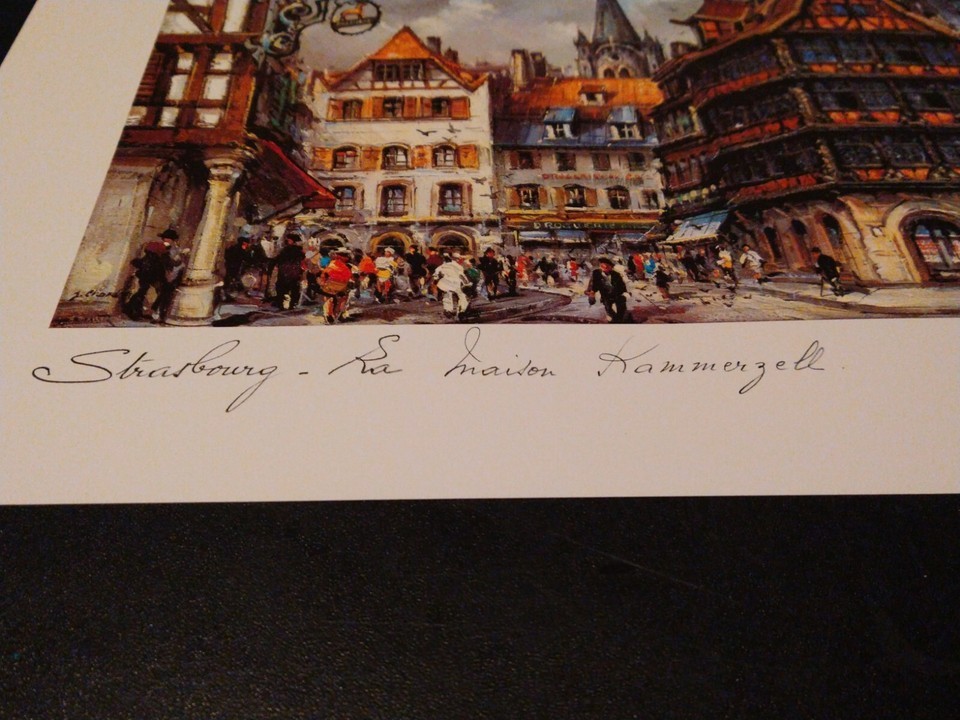 DROGUERIE
Strasbourg - La Maison Kammerzell